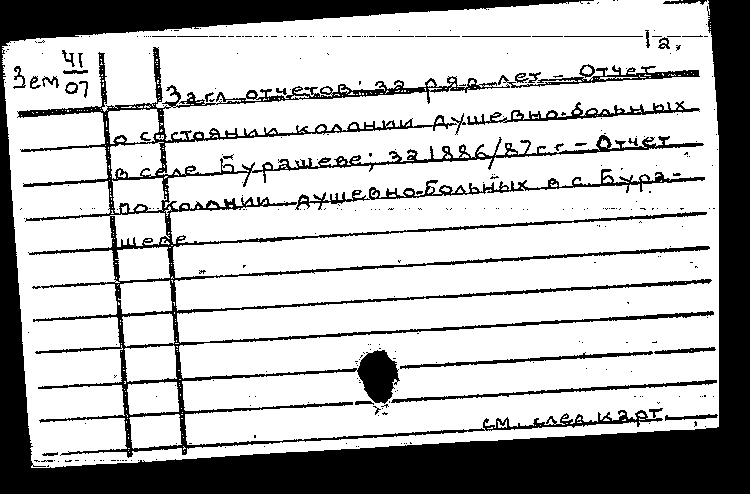 1а.
Зем 41/07
Загл. отчетов: за ряд лет – Отчет
о состоянии колонии душевно-больных
в селе Бурашеве; за 1886/87 г.г. – Отчет
по колонии душевно-больных в с. Бура-
шеве.
см. след. карт.